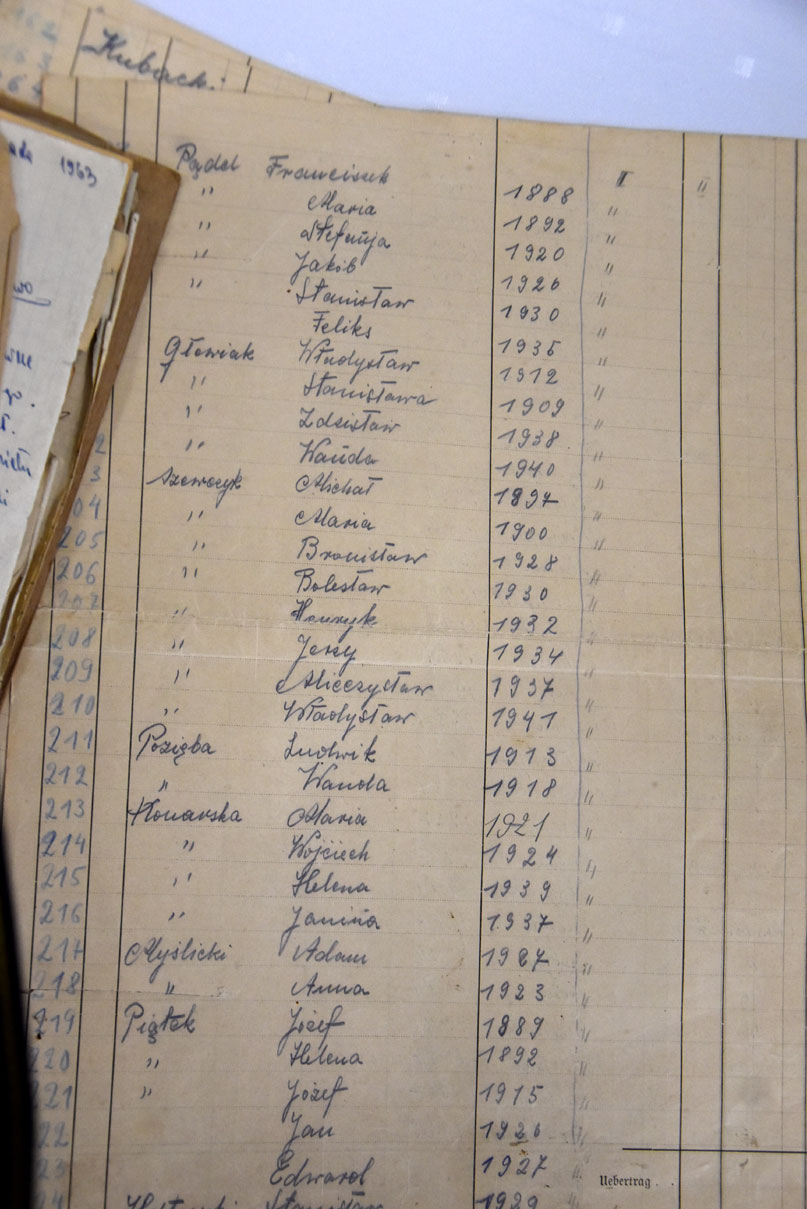 Kubach.
1963
Pędel Franciszek 1888 II II
" Maria 1892 "
" Stefanja 1920 "
" Jakób 1926 "
" Stanisław 1930 "
Feliks 1935 "
Głowiak Władysław 1912 "
" Stanisława 1909 "
" Zdzisław 1938 "
" Wanda 1940 "
3 Szewczyk Michał 1897 "
04 " Maria 1900 "
205 " Bronisław 1928 "
206 " Bolesław 1930 "
207 " Henryk 1932 "
208 " Jerzy 1934 "
209 " Mieczysław 1937 "
210 " Władysław 1941 "
211 Pozięba Ludwik 1913 "
212 " Wanda 1918 "
213 Konarska Maria 1921 "
214 " Wojciech 1924 "
215 " Helena 1939 "
216 " Janina 1937 "
217 Myślicki Adam 1927 "
218 " Anna 1923 "
219 Piątek Józef 1889 "
220 " Helena 1892 "
221 " Józef 1915 "
22 Jan 1926 "
23 Edward 1927
Uebertrag . .
24 Stanisław 1929 "